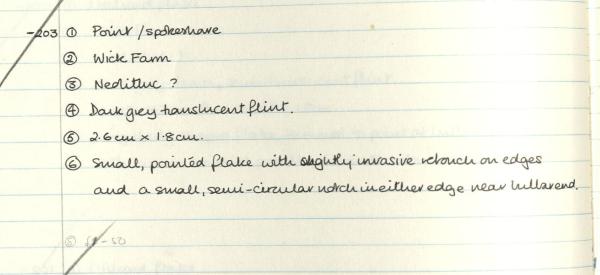 -203 ① Point / spokeshave
② Wick Farm
③ Neolithic ?
④ Dark grey translucent flint.
⑤ 2.6cm x 1.8cm.
⑥ Small, pointed flake with slightly invasive retouch on edges
and a small, semi-circular notch in either edge near bulbar end.